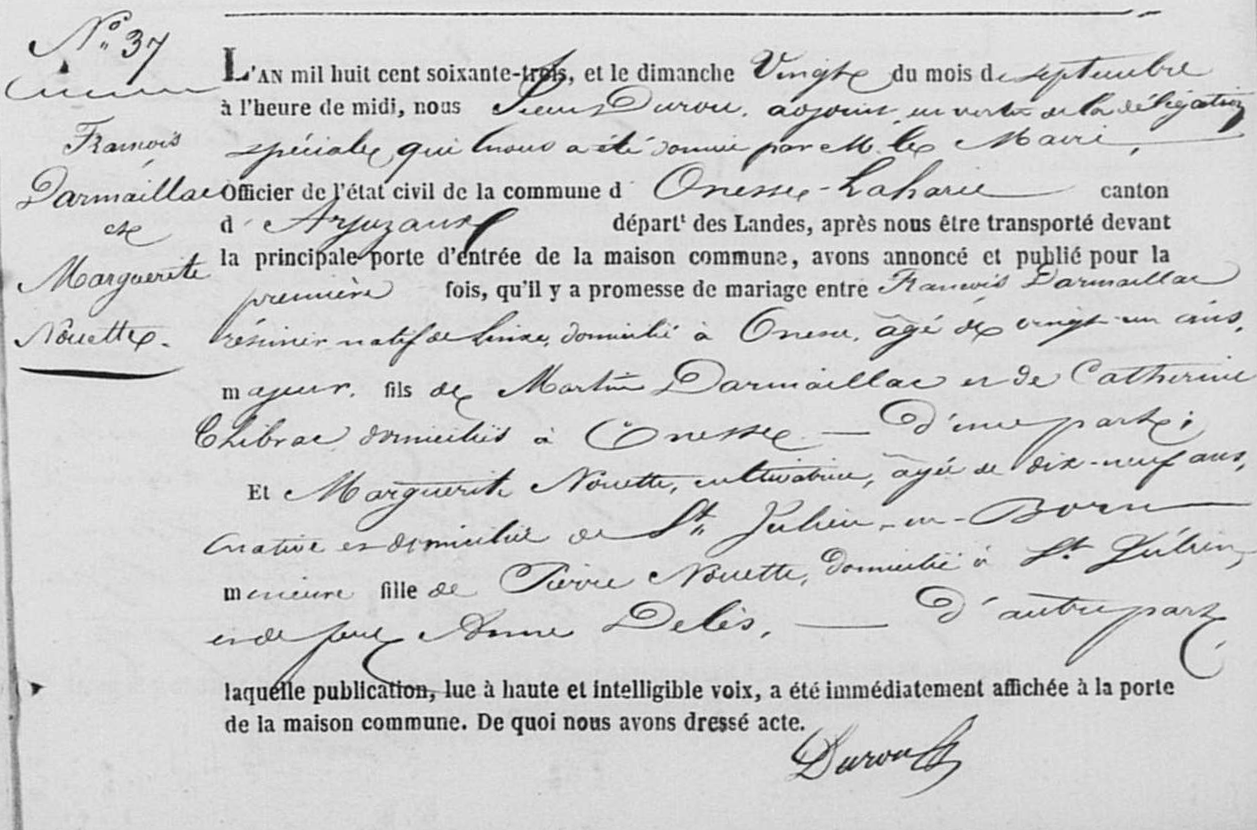 N° 37
François
Darmaillac
et
Marguerite
Nouette.
L'AN mil huit cent soixante-trois, et le dimanche Vingt du mois de septembre
à l'heure de midi, nous Durou, adjoint, en vertu de la délégation
spéciale qui nous a été donnée par M. le Maire,
Officier de l'état civil de la commune d' Onesse-Laharie canton
d' Arjuzanx départt des Landes, après nous être transporté devant
la principale porte d'entrée de la maison commune, avons annoncé et publié pour la
première fois, qu'il y a promesse de mariage entre François Darmaillac
résinier natif de Linxe, domicilié à Onesse, âgé de vingt-un ans,
majeur, fils de Martin Darmaillac et de Catherine
Chibrac domiciliés à Onesse — d'une part;
Et Marguerite Nouette, cultivatrice, âgée de dix-neuf ans,
native et domiciliée de St Julien-en-Born
mineure fille de Pierre Nouette, domicilié à St Julien,
et de feue Anne Delès, — d'autre part,
laquelle publication, lue à haute et intelligible voix, a été immédiatement affichée à la porte
de la maison commune. De quoi nous avons dressé acte.
Durou